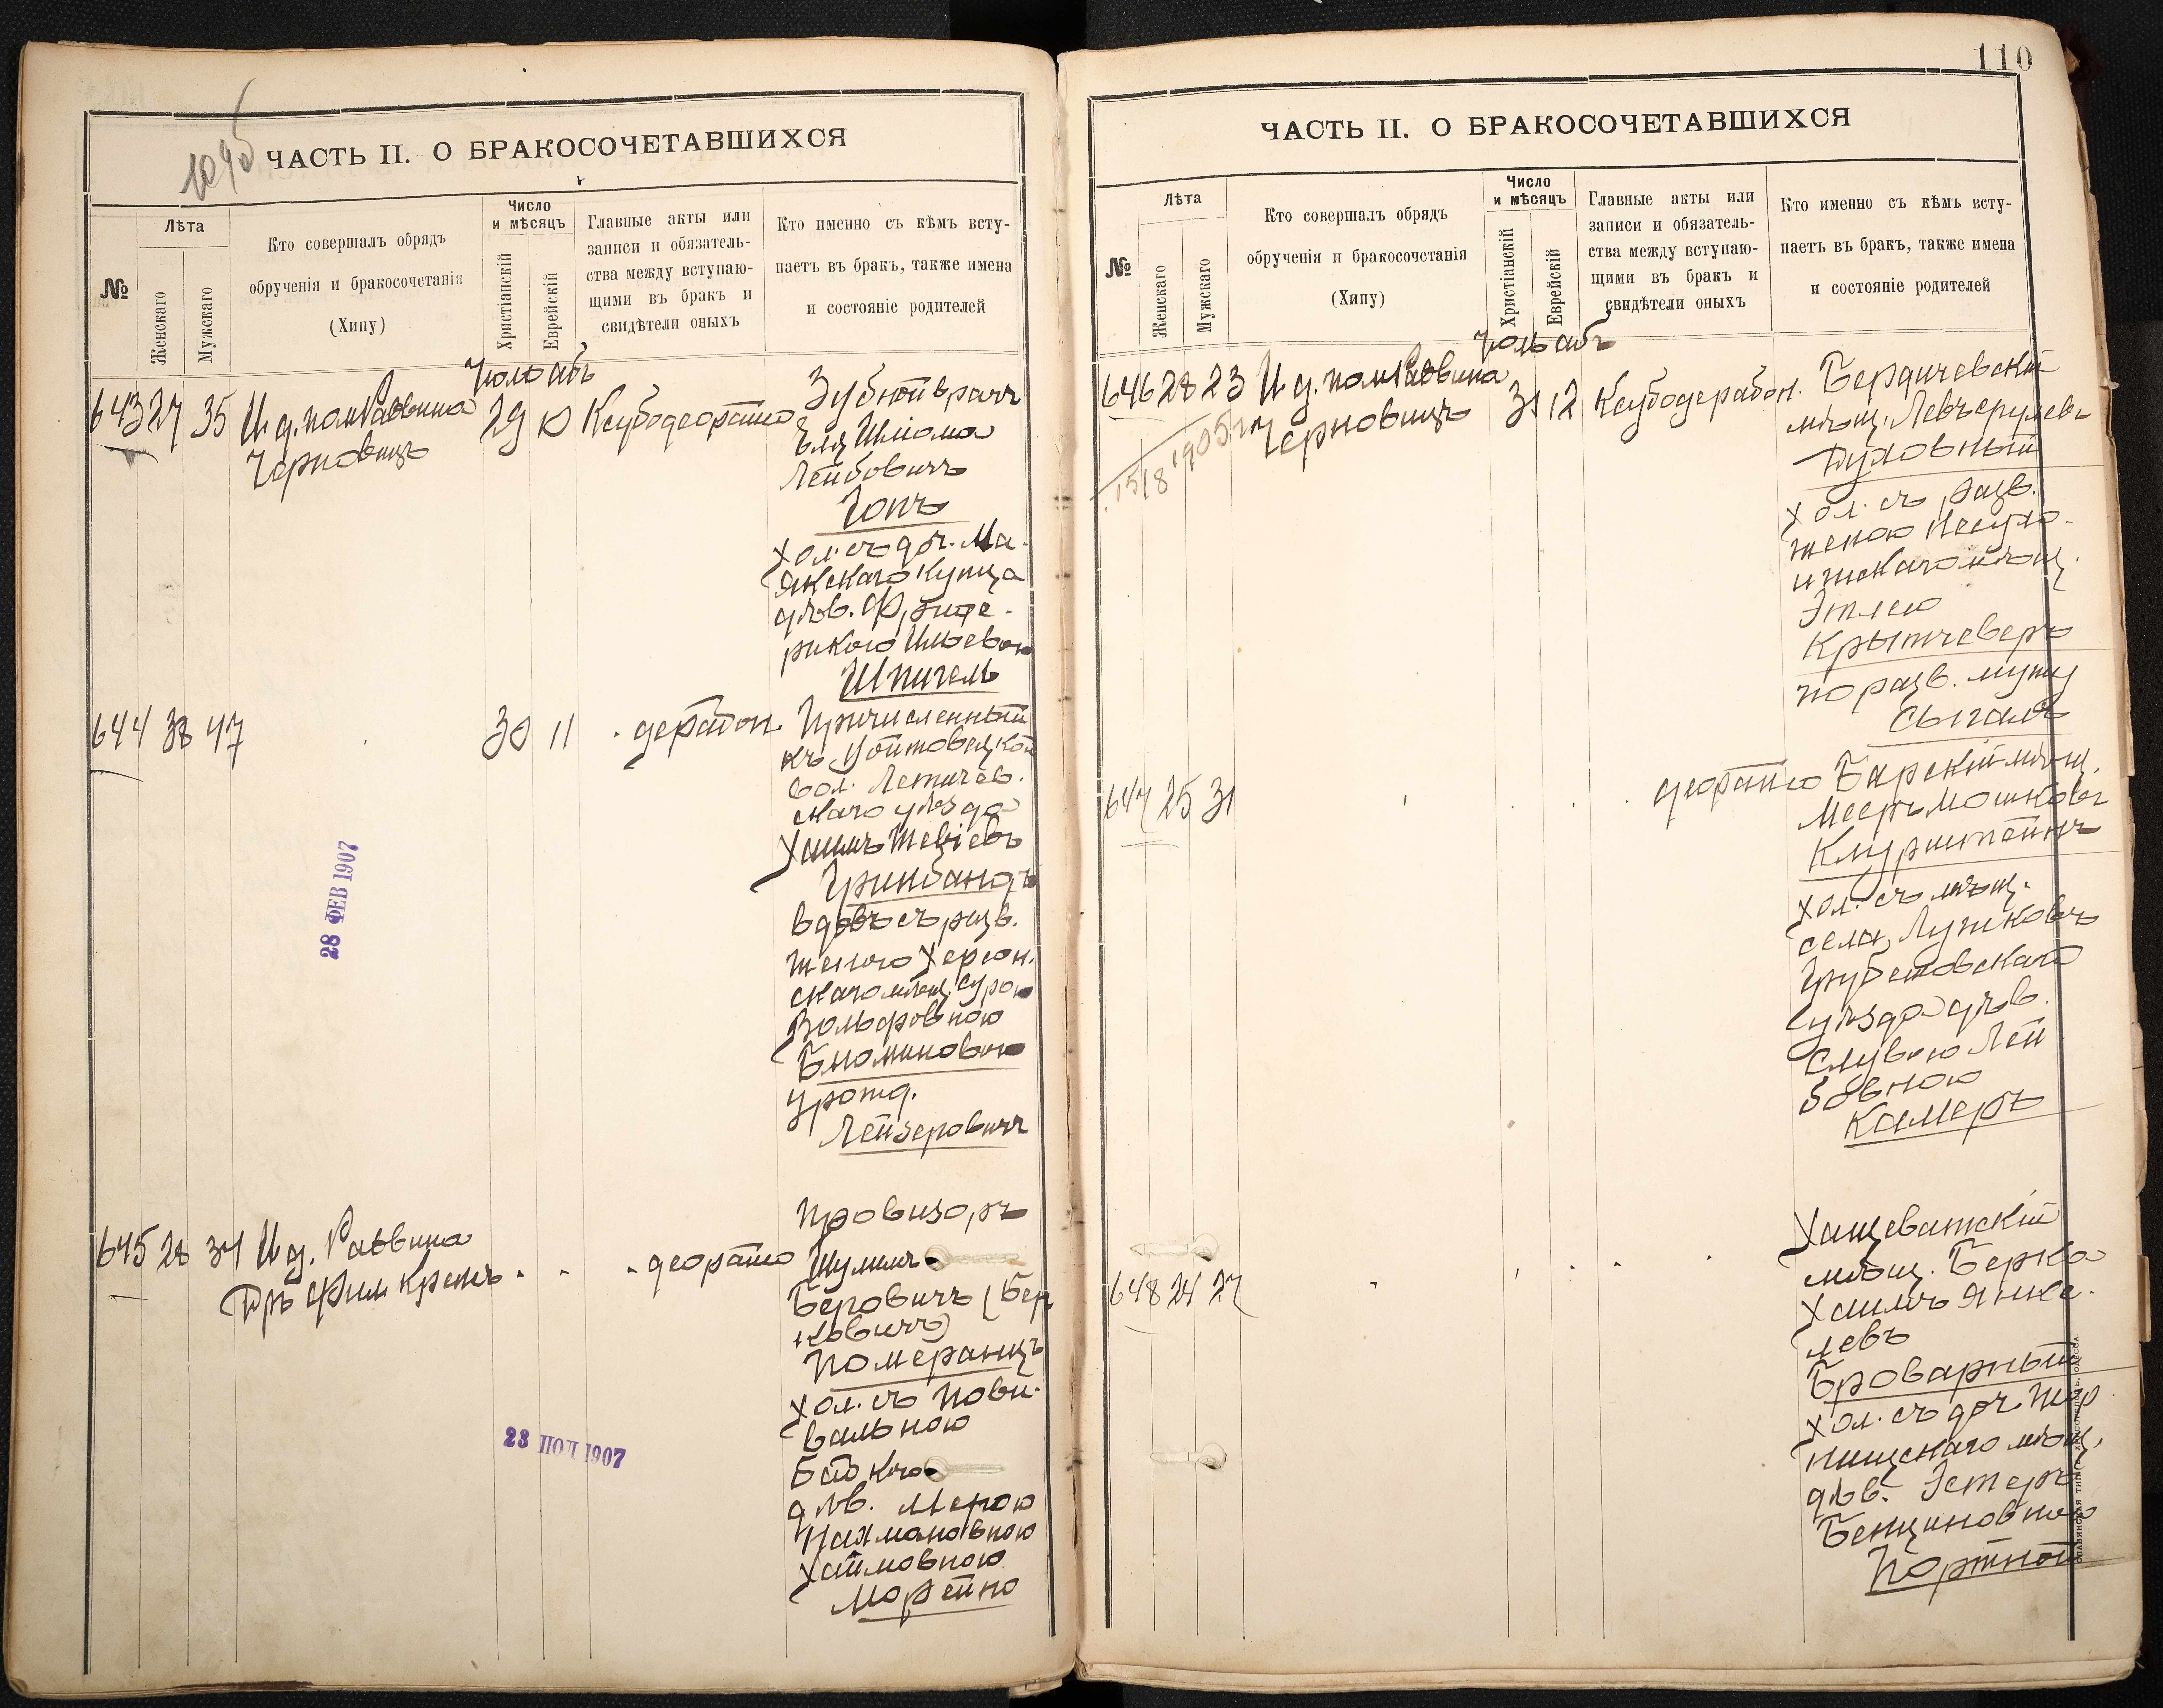 1095
ЧАСТЬ II. О БРАКОСОЧЕТАВШИХСЯ
№
Лѣта
Женскаго
Мужскаго
Кто совершалъ обрядъ
обрученія и бракосочетанія
(Хипу)
Число
и мѣсяцъ
Христіанскій
Еврейскій
Главные акты или
записи и обязатель-
ства между вступаю-
щими въ бракъ и
свидѣтели оныхъ
Кто именно съ кѣмъ всту-
паетъ въ бракъ, также имена
и состояніе родителей
Іюль абъ
643 27 35 И д. пом Раввина
Черновицъ
29 10
Зубной врачъ
Эля Шліома
Лейбовичъ
Гопъ
хол. съ доч. Ма-
якскаго купца
дѣв. Фриде-
рикою Ильевою
Шпигель
644 38 47
30 11
Причисленный
къ Войтовецкой
вол. Летичев.
скаго уѣзда
Хаимъ Тевіевъ
Гринбандъ
вдовъ съ разв.
женою Херсон.
скаго мѣщ. Сурою
Вольфовною
Блюминовою
урожд.
Лейзеровичъ
28 ФЕВ 1907
645 28 34 И д. Раввина
Д-ръ Фим Крепсъ
Провизоръ
Шулимъ
Беровичъ (Бер
ковичъ)
Померанцъ
хол. съ Пови-
вальною
Бабкою
дѣв. Мерою
Нахмановною
Хаимовною
Морейно
23 ПОЛ 1907
110
ЧАСТЬ II. О БРАКОСОЧЕТАВШИХСЯ
№
Лѣта
Женскаго
Мужскаго
Кто совершалъ обрядъ
обрученія и бракосочетанія
(Хипу)
Число
и мѣсяцъ
Христіанскій
Еврейскій
Главные акты или
записи и обязатель-
ства между вступаю-
щими въ бракъ и
свидѣтели оныхъ
Кто именно съ кѣмъ всту-
паетъ въ бракъ, также имена
и состояніе родителей
Іюль абъ
646 28 23 И д. пом Раввина
Черновицъ
31 12
15/8 1905
Бердичевскій
мѣщ. Левъ Срулевъ
Духовный
хол. съ разв.
женою
Этлею
Крытчеверъ
по разв. мужу
Сыгалъ
647 25 31
Барскій мѣщ.
Мееръ Мошковъ
Клурштейнъ
хол. съ мѣщ.
села Лушковъ
Грубешовскаго
уѣзда дѣв.
Лей
бовною
Камеръ
648 24 27
Хащеватскій
мѣщ. Берко
Хаимъ Янке-
левъ
Броварный
хол. съ доч. Тир
мѣщ.
дѣв. Эстеръ
Бенционовною
Портной